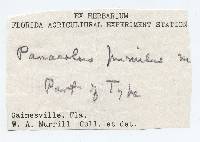 EX HERBARIUM
FLORIDA AGRICULTURAL EXPERIMENT STATION
Panaeolus
Part of Type
Gainesville, Fla.
W. A. Murrill Coll. et det.